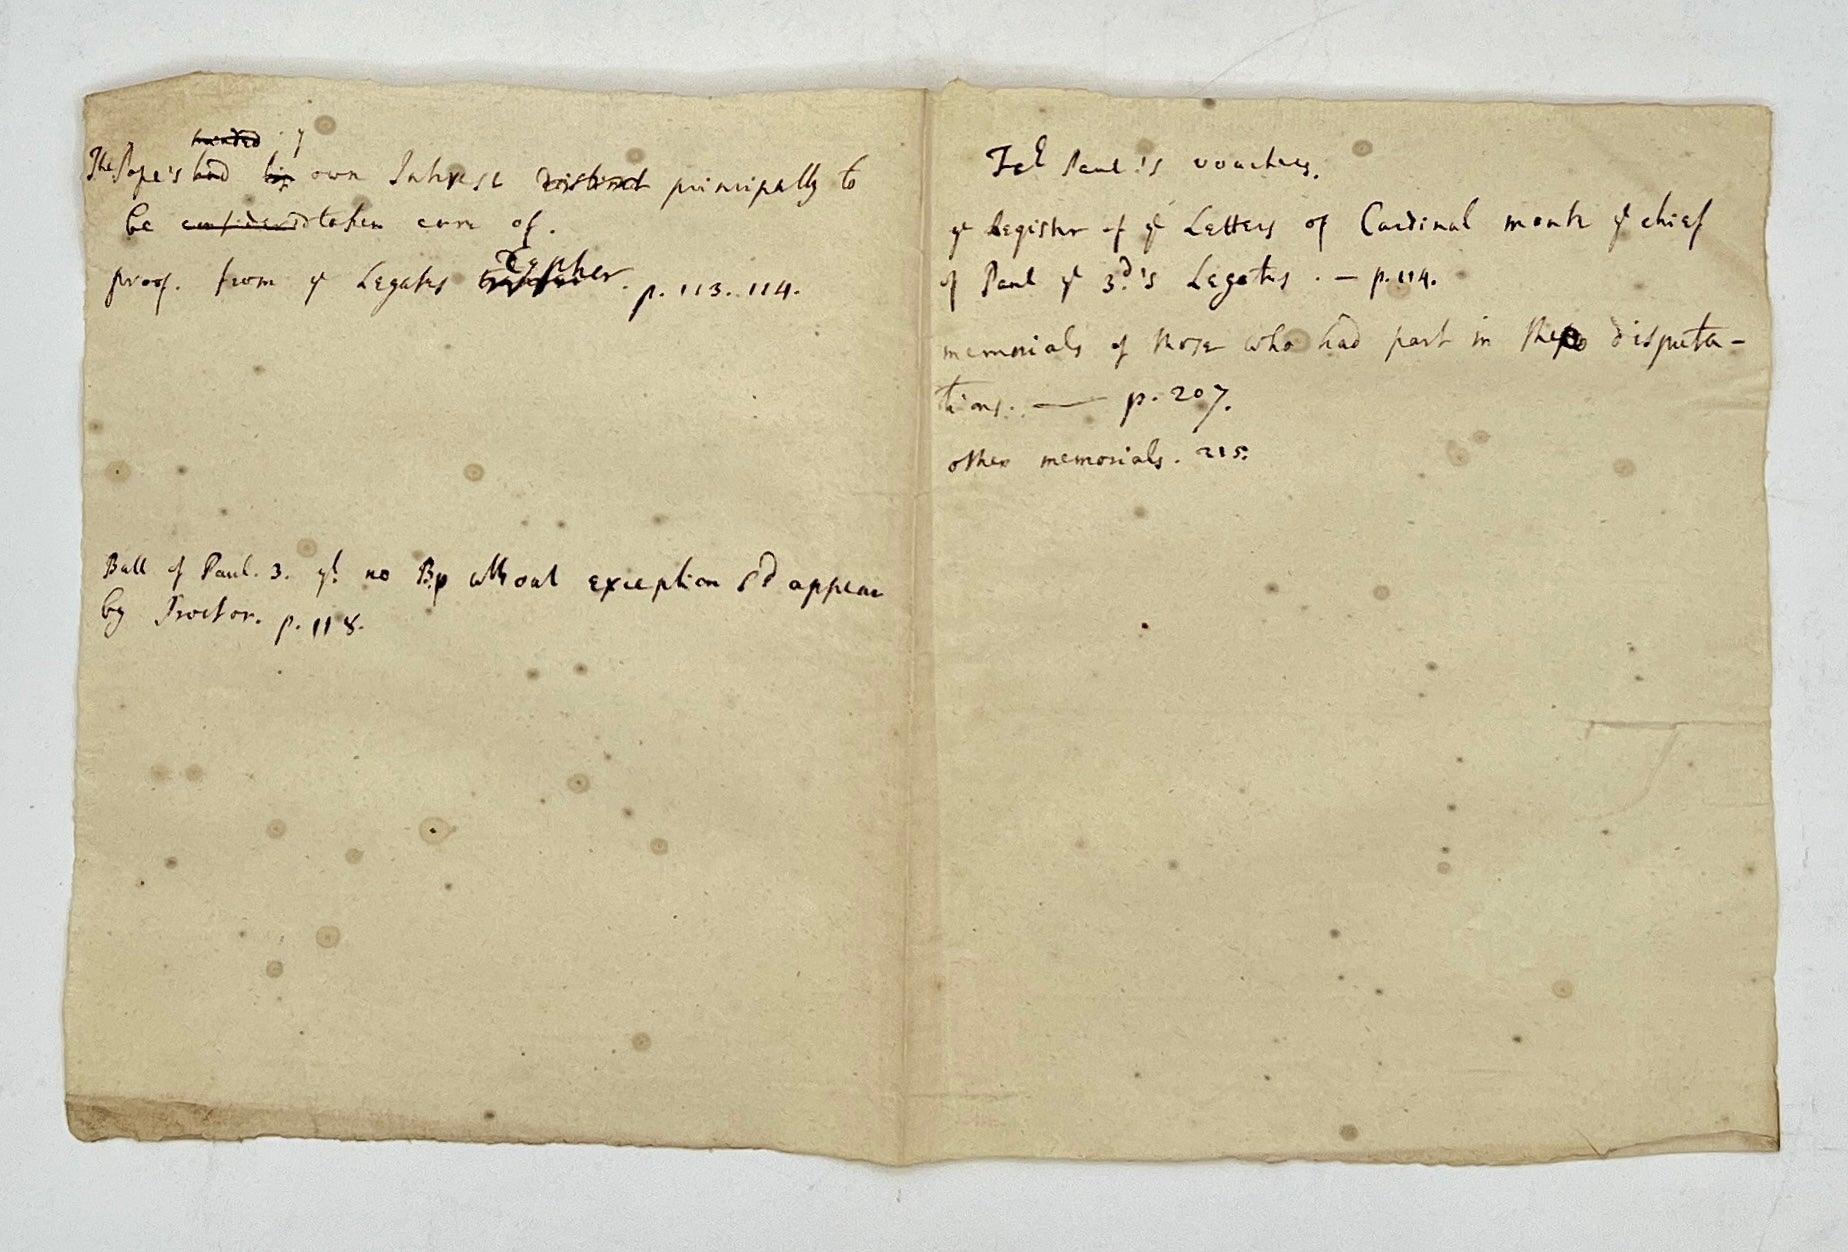 The Pope's had his own Interest distinct principally to
be considered taken care of.
proof. from ye Legates Cypher. p. 113. 114.
Bull of Paul. 3. yt no Bp without exception sd appear
by Proctor. p. 118.
Fr Paul's vouchers.
ye Register of ye Letters of Cardinal monte ye chief
of Paul ye 3d's Legates. — p. 114.
memorials of those who had part in these disputa-
tions. — p. 207.
other memorials. 215.